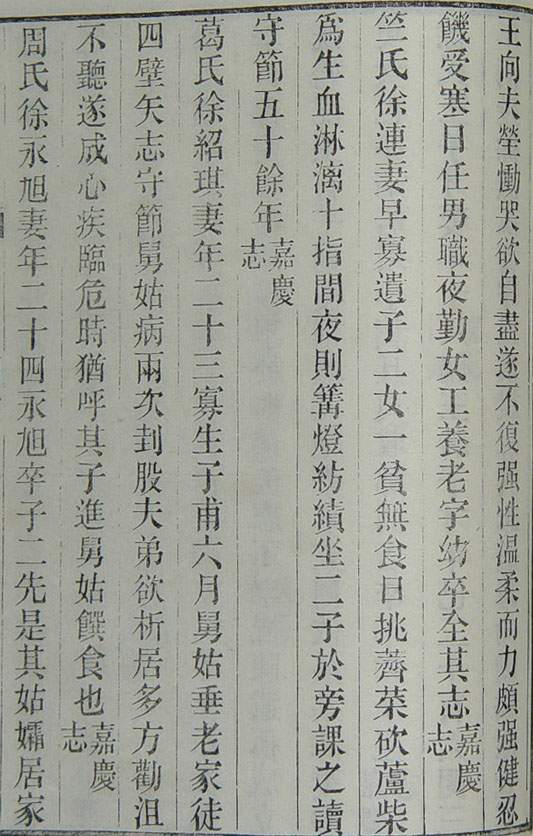 王向夫塋慟哭欲自盡遂不復强性溫柔而力頗强健忍
饑受寒日任男職夜勤女工養老字幼卒至其志嘉慶志
竺氏徐連妻早寡遺子二女一貧無食日挑薺菜砍蘆柴
爲生血淋漓十指間夜則篝燈紡績坐二子於旁課之讀
守節五十餘年嘉慶志
葛氏徐紹琪妻年二十三寡生子甫六月舅姑垂老家徒
四壁矢志守節舅姑病兩次刲股夫弟欲析居多方勸沮
不聽遂成心疾臨危時猶呼其子進舅姑饌食也嘉慶志
周氏徐永旭妻年二十四永旭卒子二先是其姑孀居家